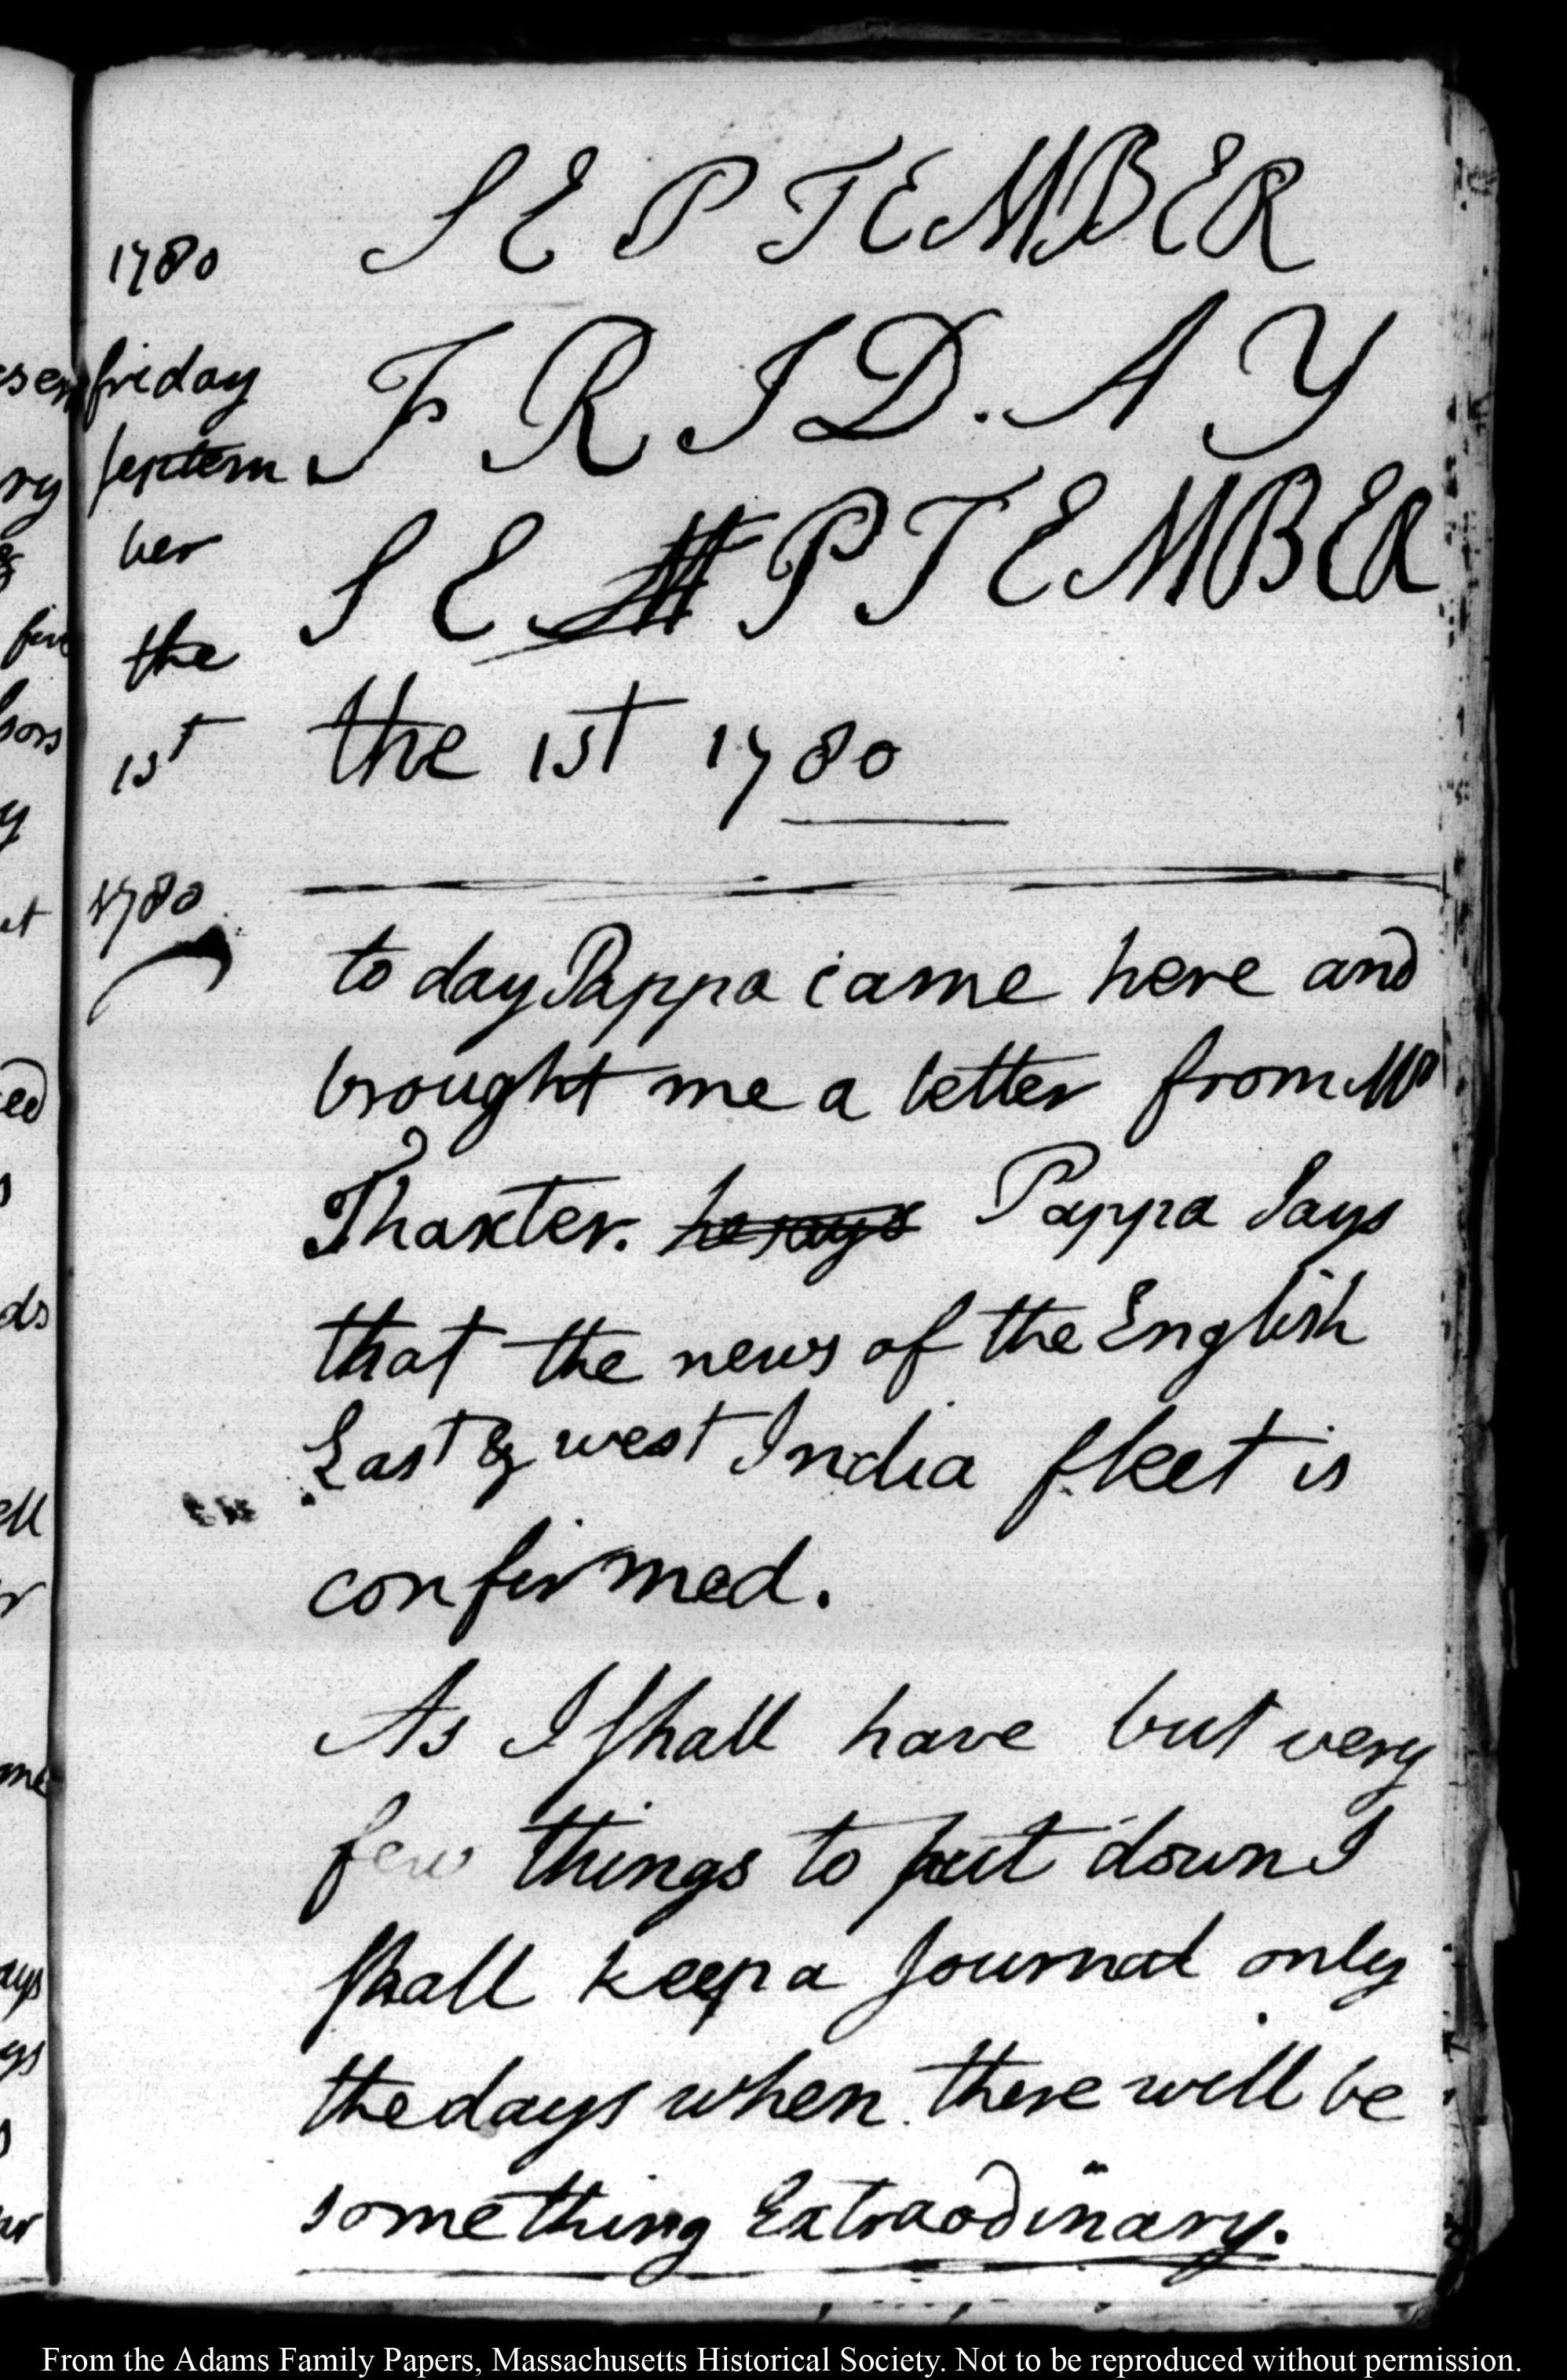 SEPTEMBER
1780
friday
septem
ber
the
1st
1780
FRID.AY
SEPTEMBER
the 1st 1780
to day Pappa came here and
brought me a letter from Mr
Thaxter. he says Pappa Says
that the news of the English
East & west India fleet is
confirmed.
As I shall have but very
few things to put down I
shall keep a Journal only
the days when there will be
something Extraodinary.
From the Adams Family Papers, Massachusetts Historical Society. Not to be reproduced without permission.